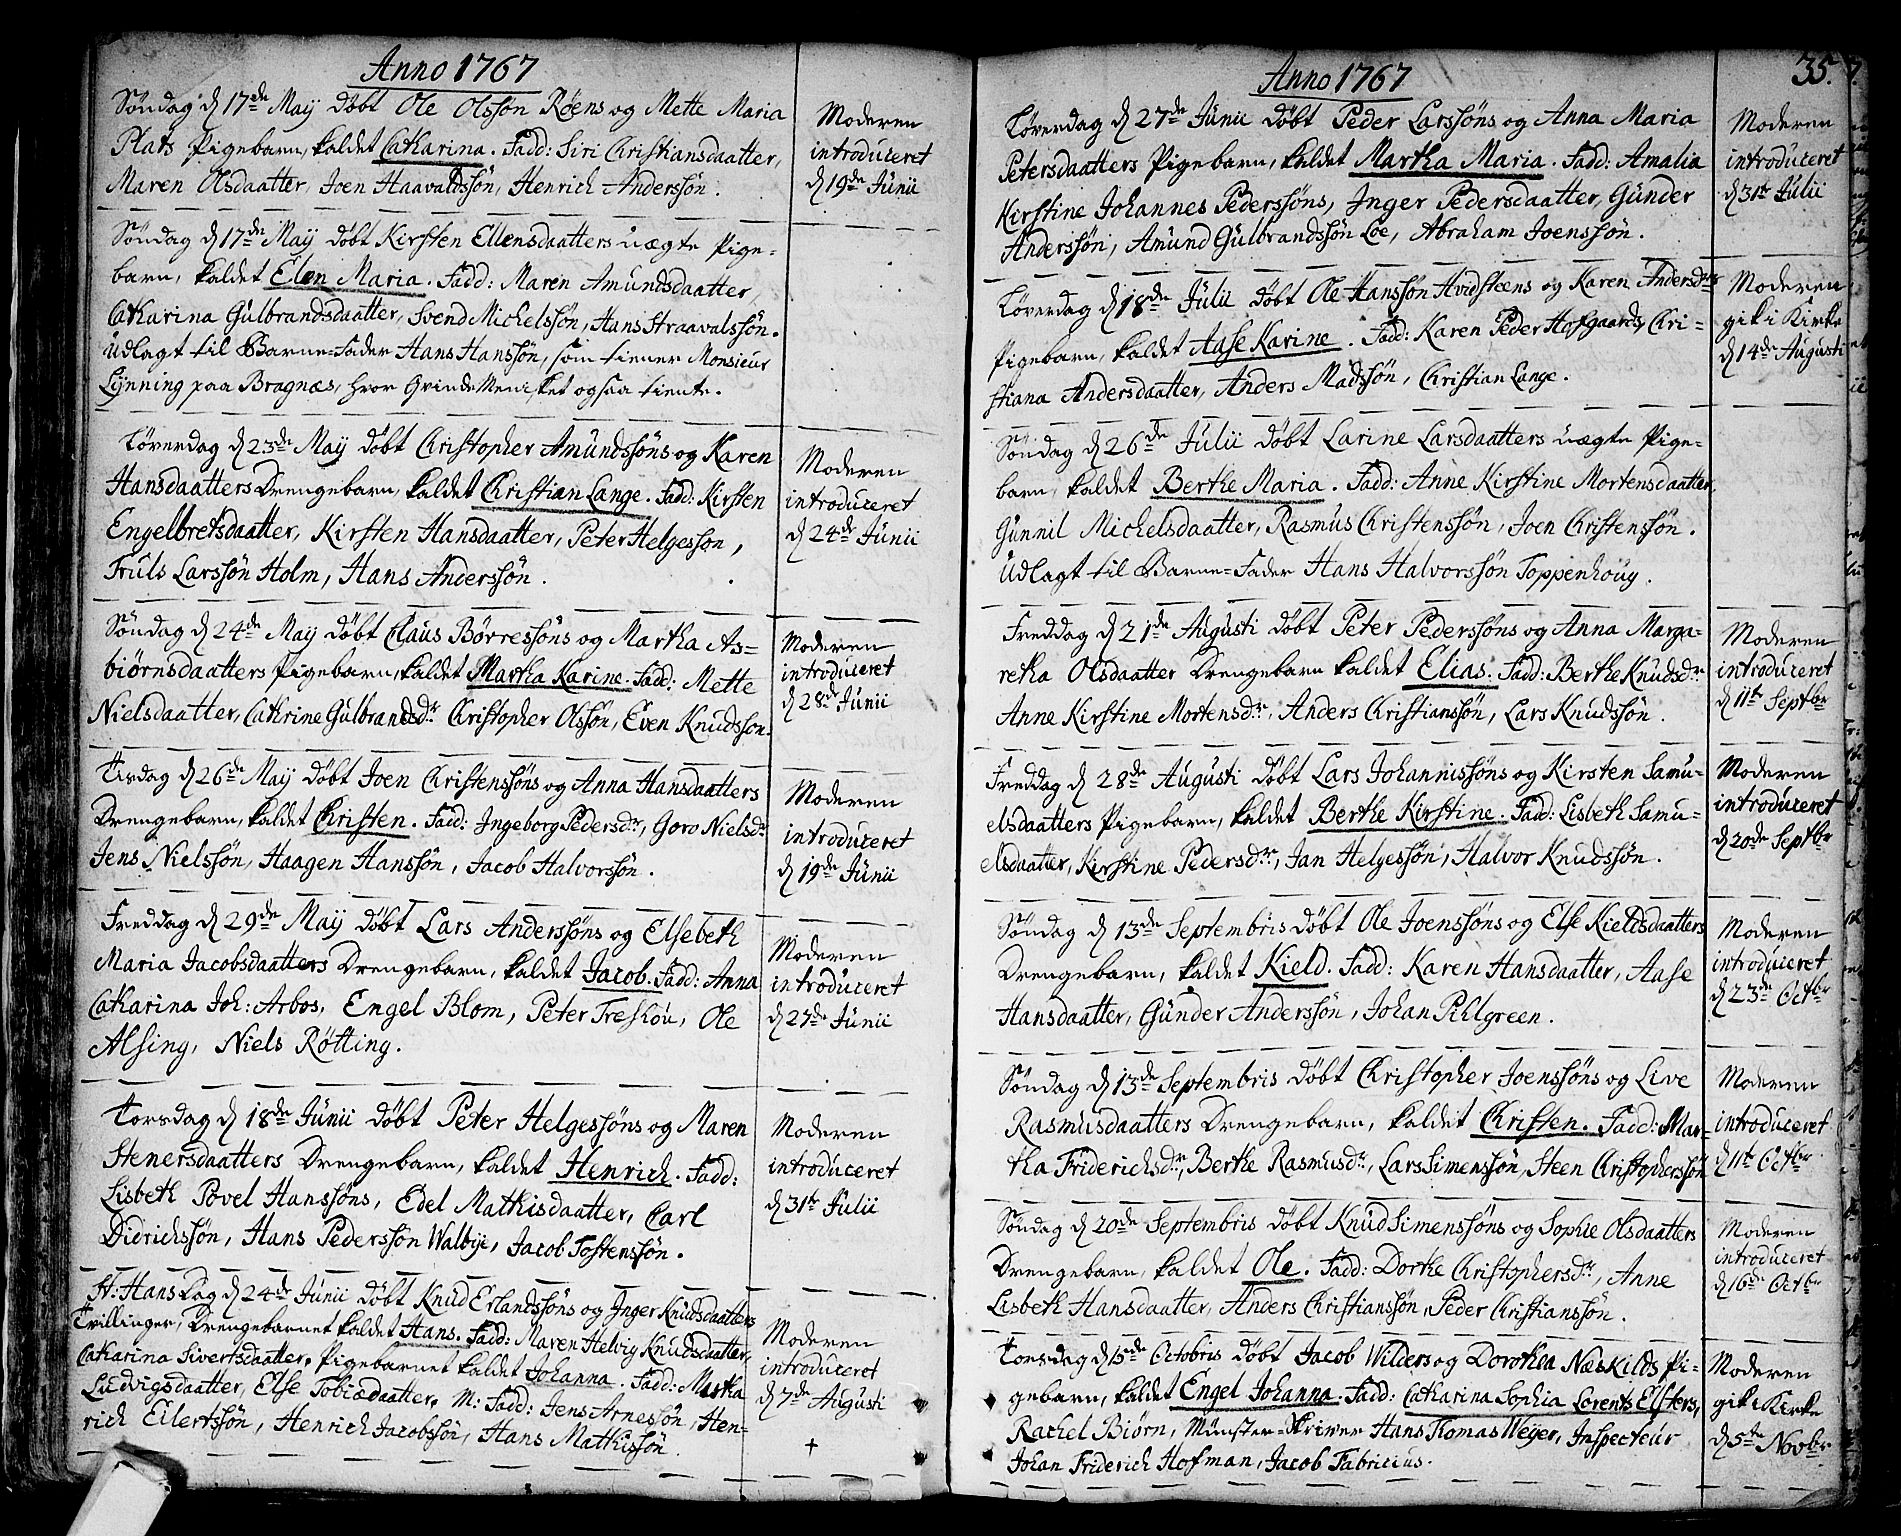 Anno 1767
Søndag d 17de Maij døbt Ole Olssøn Røens og Mette Maria
Plats Pigebarn, kaldet Catharina. Fadd: Siri Christiansdaatter,
Maren Olsdaatter, Joen Haavaldssøn, Henrich Anderssøn.
Moderen
introduceret
d 19de Junii
Søndag d 17de Maij døbt Kirsten Ellensdaatters uægte Pige-
barn, kaldet Elen Maria. Fadd: Maren Amundsdaatter,
Catharina Gulbrandsdaatter, Svend Michelssøn, Hans Straavalssøn.
Udlagt til Barne-Fader Hans Hanssøn, som tiener Monsieur
Lynning paa Bragnæs, hvor Qvinde Mennisket ogsaa tiente.
Løverdag d 23de Maij døbt Christopher Amundssøns og Karen
Hansdaatters Drengebarn, kaldet Christian Lange. Fadd: Kirsten
Engelbretsdaatter, Kirsten Hansdaatter, Peter Helgessøn,
Truls Larssøn Holm, Hans Anderssøn.
Moderen
introduceret
d 24de Junii
Søndag d 24de Maij døbt Claus Børressøns og Martha As-
biørnsdaatters Pigebarn, kaldet Martha Karine. Fadd: Mette
Nielsdaatter, Cathrine Gulbrandsdr Christopher Olssøn, Even Knudssøn.
Moderen
introduceret
d 28de Junii
Tirsdag d 26de Maij døbt Joen Christenssøns og Anna Hansdaatters
Drengebarn, kaldet Christen. Fadd: Ingeborg Pedersdr, Goro Nielsdr
Jens Nielssøn, Haagen Hanssøn, Jacob Halvorssøn.
Moderen
introduceret
d 19de Junii
Freddag d 29de Maij døbt Lars Anderssøns og Elsebeth
Maria Jacobsdaatters Drengebarn, kaldet Jacob. Fadd: Anna
Catharina Joh: Arbos, Engel Blom, Peter Treshou, Ole
Alsing, Niels Røtting.
Moderen
introduceret
d 27de Junii
Torsdag d 18de Junii døbt Peter Helgessøns og Maren
Stenersdaatters Drengebarn, kaldet Henrich. Fadd:
Lisbeth Povel Hanssøns, Edel Mathisdaatter, Carl
Didrichssøn, Hans Pederssøn Walbye, Jacob Tostenssøn.
Moderen
introduceret
d 31te Julii
St: Hans Dag d 24de Junii døbt Knud Erlandssøns og Inger Knudsdaatters
Tvillinger, Drengebarnet kaldet Hans. Fadd: Maren Helvig Knudsdaatter,
Catharina Sivertsdaatter. Pigebarnet kaldet Johanna. Fadd: Martha
Ludvigsdaatter, Else Tobiædaatter. M: Fadd: Jens Arnessøn, Hen-
rich Eilertssøn, Henrich Jacobssøn, Hans Mathissøn.
Moderen
introduceret
d 7de Augusti
+
35.
Anno 1767
Løverdag d 27de Junii døbt Peder Larssøns og Anna Maria
Petersdaatters Pigebarn, kaldet Martha Maria. Fadd: Amalia
Kirstine Johannes Pederssøns, Inger Pedersdaatter, Gunder
Anderssøn, Amund Gulbrandssøn Loe, Abraham Joenssøn.
Moderen
introduceret
d 31te Julii
Løverdag d 18de Julii døbt Ole Hanssøn Hvidsteens og Karen Andersdrs
Pigebarn, kaldet Aase Karine. Fadd: Karen Peder Hofgaards, Chri-
stiana Andersdaatter, Anders Madssøn, Christian Lange.
Moderen
gik i Kirke
d 14de Augusti
Søndag d 26de Julii døbt Larine Larsdaatters uægte Pige-
barn, kaldet Berthe Maria. Fadd: Anne Kirstine Mortensdaatter
Gunnil Michelsdaatter, Rasmus Christenssøn, Joen Christenssøn.
Udlagt til Barne-Fader Hans Halvorssøn Toppenhoug.
Freddag d 21de Augusti døbt Peter Pederssøns og Anna Marga-
retha Olsdaatter Drengebarn kaldet Elias. Fadd: Berthe Knudsdr
Anne Kirstine Mortensdr, Anders Christianssøn, Lars Knudssøn.
Moderen
introduceret
d 11te Septbr
Freddag d 28de Augusti døbt Lars Johannissøns og Kirsten Samu-
elsdaatters Pigebarn, kaldet Berthe Kirstine. Fadd: Lisbeth Samu-
elsdaatter, Kirstine Pedersdr, Jan Helgessøn, Halvor Knudssøn.
Moderen
introduceret
d 20de Septbr
Søndag d 13de Septembris døbt Ole Joenssøns og Else Kieldsdaatters
Drengebarn, kaldet Kield. Fadd: Karen Hansdaatter, Aase
Hansdaatter, Gunder Anderssøn, Johan Pihlgreen.
Moderen
introduceret
d 23de Octbr
Søndag d 13de Septembris døbt Christopher Joenssøns og Live
Rasmusdaatters Drengebarn, kaldet Christen. Fadd: Mar-
tha Friderichsdr, Berthe Rasmusdr, Lars Simenssøn, Steen Christopherssøn
Moderen
introduceret
d 11te Octbr
Søndag d 20de Septembris døbt Knud Simenssøns og Sophie Olsdaatters
Drengebarn, kaldet Ole. Fadd: Dorthe Christophersdr, Anne
Lisbeth Hansdaatter, Anders Christianssøn, Peder Christianssøn.
Moderen
introduceret
d 16de Octbr
Torsdag d 15de Octobris døbt Jacob Wilders og Dorothea Næskilds Pi-
gebarn, kaldet Engel Johanna. Fadd: Catharina Sophia Lorents Elsters,
Rachel Biørn, Munster-Skriver Hans Thomas Weyer, Inspecteur
Johan Friderich Hofman, Jacob Fabricius.
Moderen
gik i Kirke
d 5te Novbr